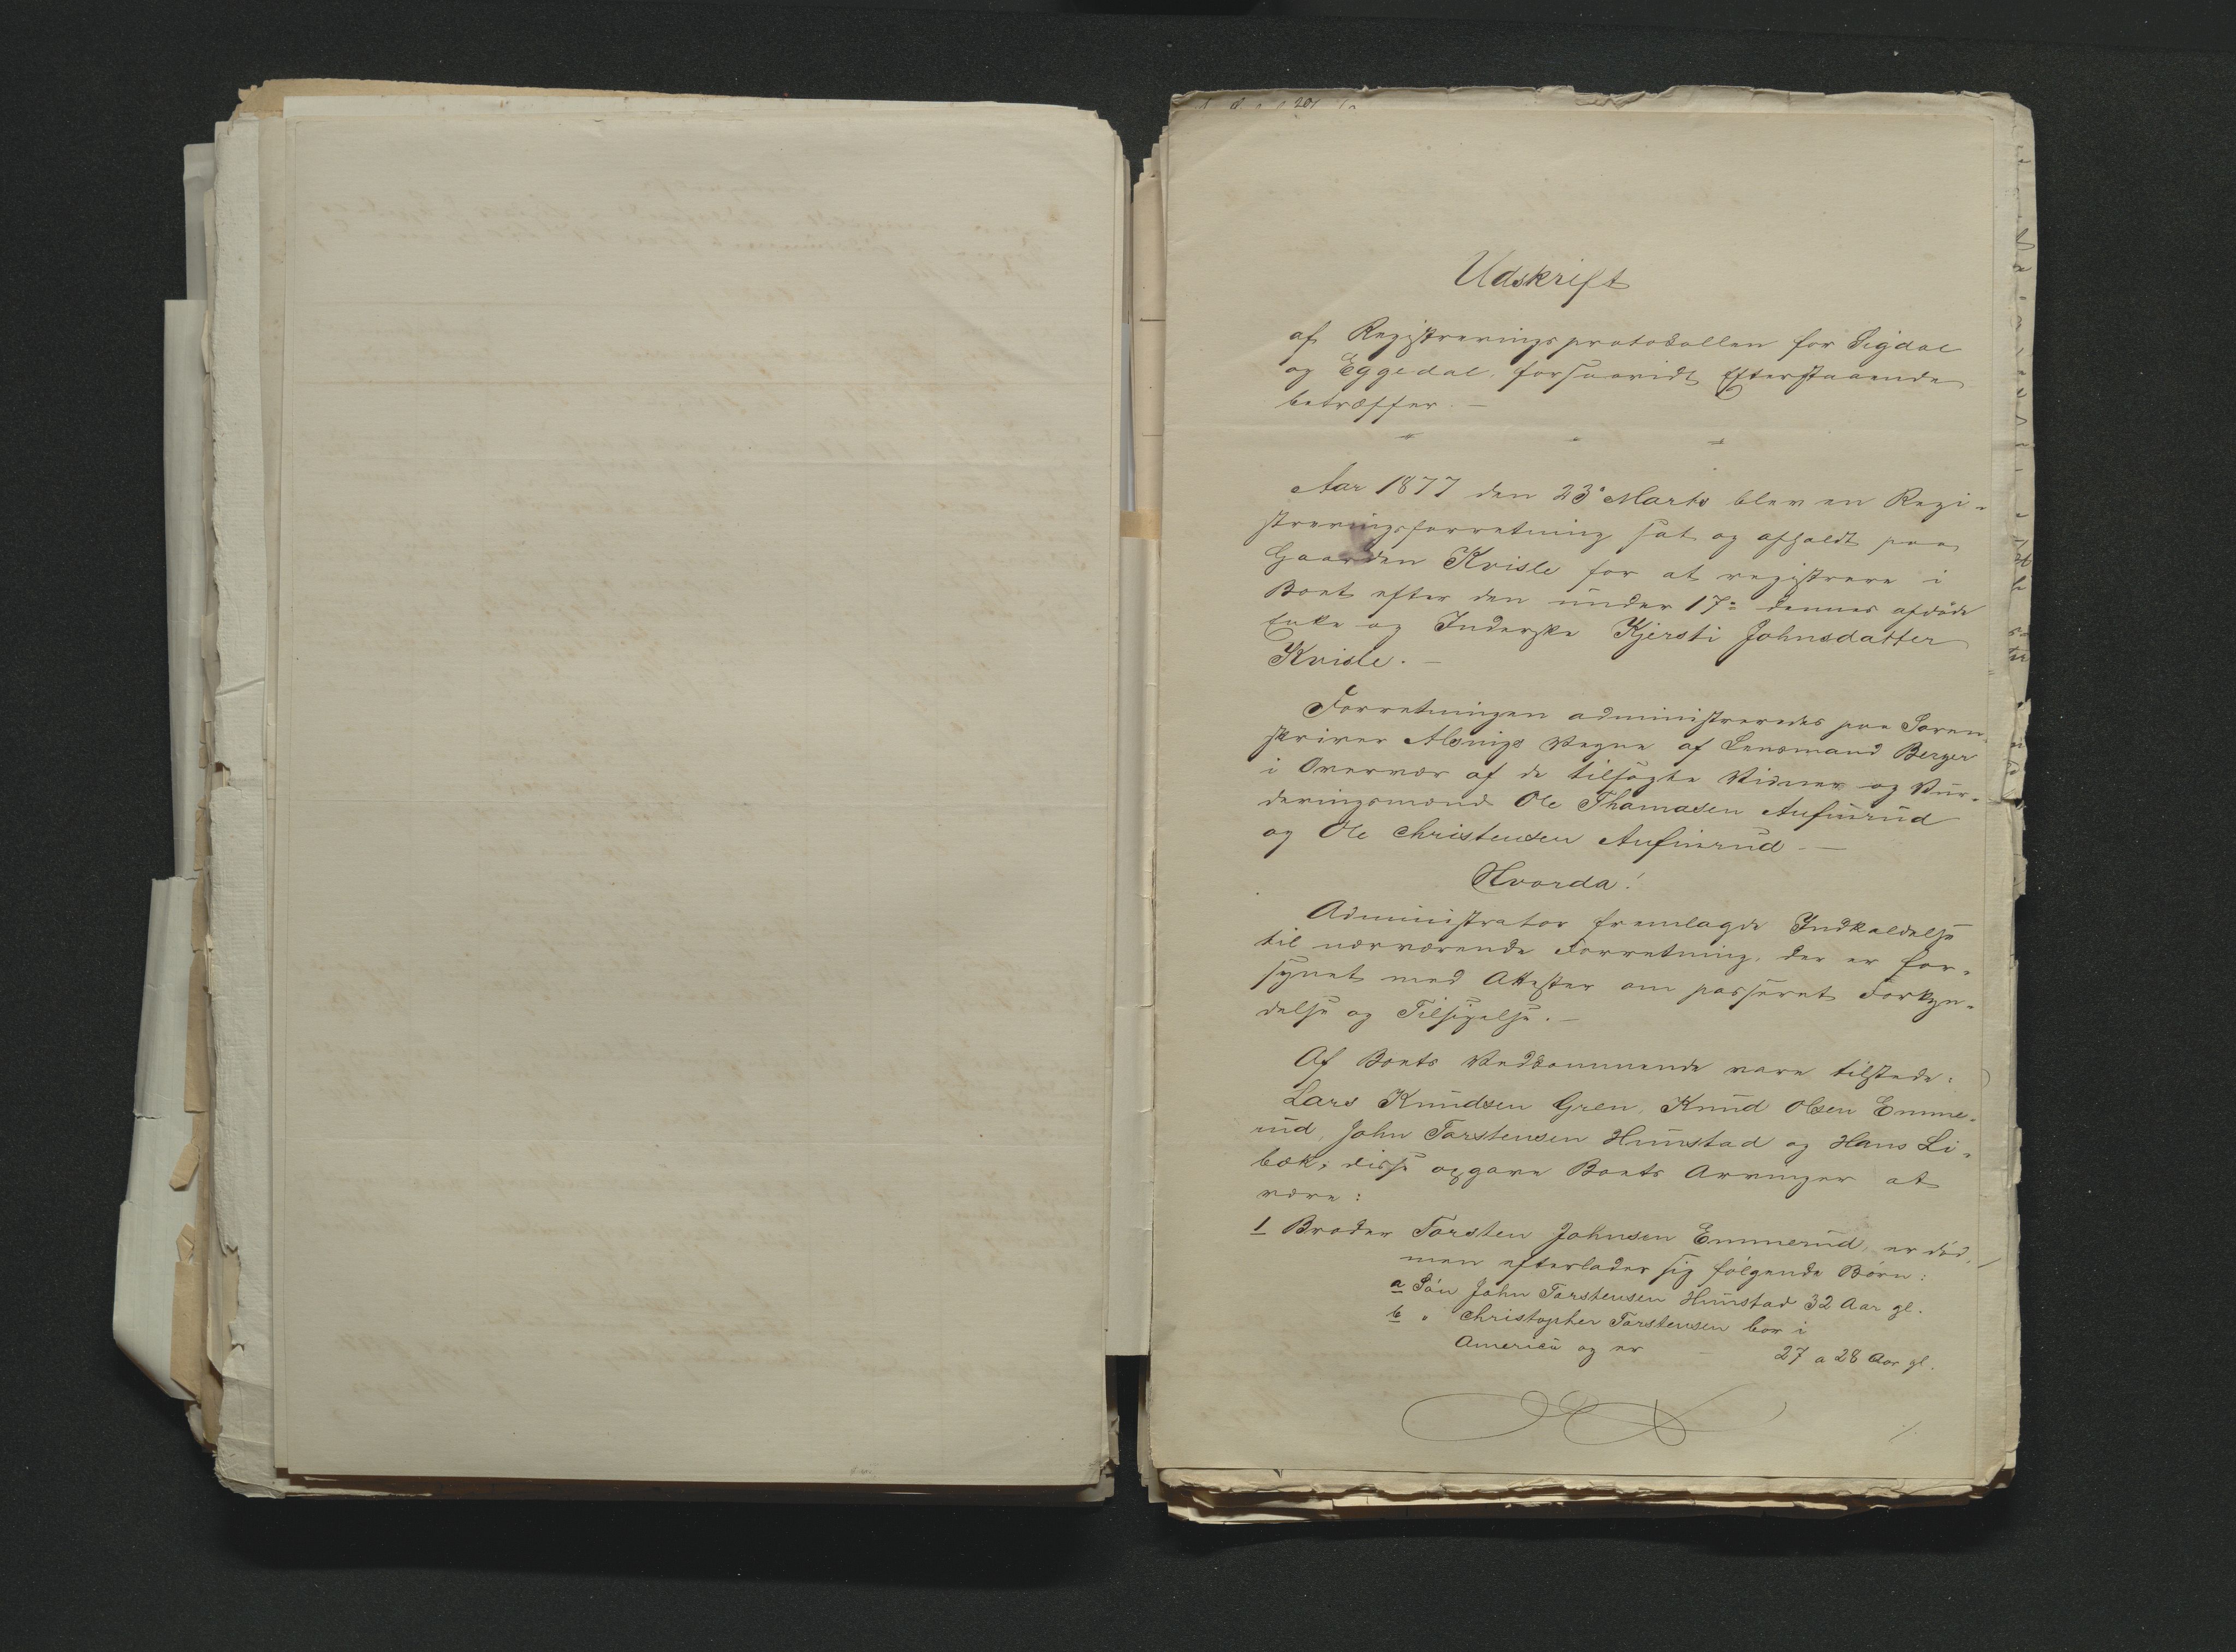 Udskrift
af Registreringsprotokollen for Sigdal
og Eggedal, forsaavidt Efterstaaende
betræffer. —
Aar 1877 den 23de Marts blev en Regi-
streringsforretning sat og afholdt paa
Gaarden Kvisle for at registrere i
Boet efter den under 17de dennes afdøde
Enke og Inderske Kjersti Johnsdatter
Kvisle. —
Forretningen administreredes paa Soren-
skriver Alsings Vegne af Lensmand Berger
i Overvær af de tilsagte Vidner og Vur-
deringsmænd Ole Thomasen Aufinrud
og Ole Christensen Aufinrud —
Hvorda!
Administrator fremlagde Indkaldelse
til nærværende Forretning, der er for-
synet med Attester om passeret Forkyn-
delse og Tilsigelse. —
Af Boets Vedkommende vare tilstede:
Lars Knudsen Gren, Knud Olsen Emme-
rud, John Torstensen Hunstad og Hans Li-
bæk, disse opgave Boets Arvinger at
være:
1 Broder Torsten Johnsen Emmerud, er død,
men efterlader sig følgende Børn:
a Søn John Torstensen Hunstad 32 Aar gl.
b " Christopher Torstensen bor i
America og er — 27 a 28 Aar gl.